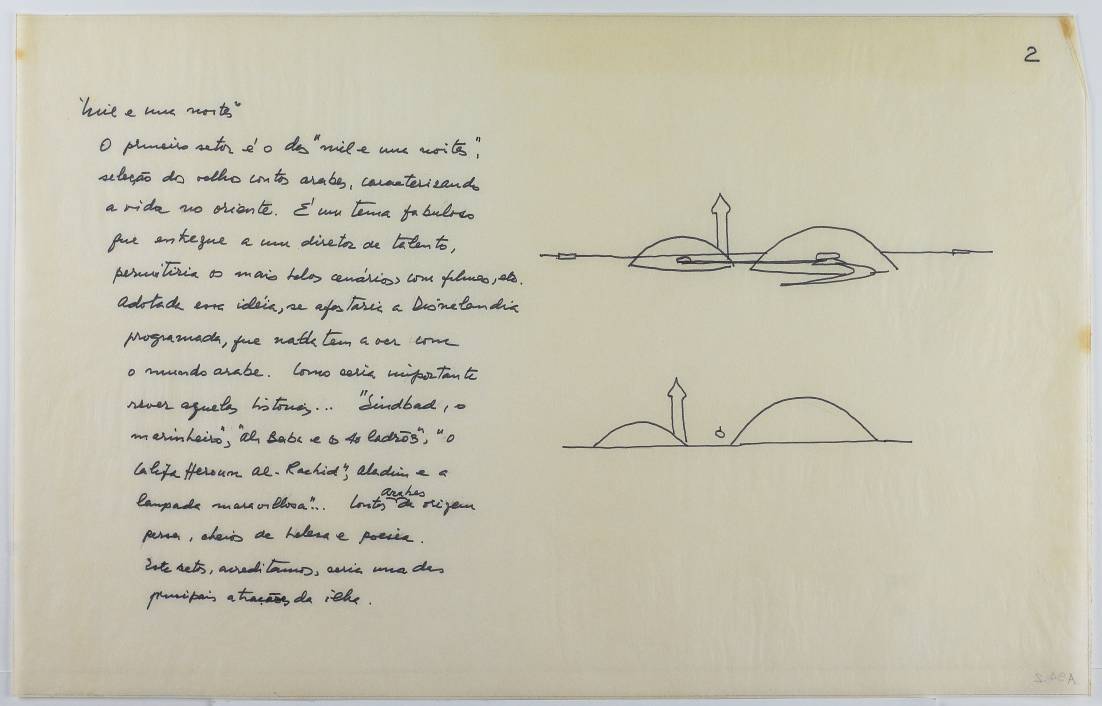 2
"Mil e uma noites"
O primeiro setor é o das "mil e uma noites",
seleção dos velhos contos arabes, caracterizando
a vida no oriente. É um tema fabuloso
que entregue a um diretor de talento,
permitiria os mais belos cenários, com filmes, etc.
Adotada essa idéia, se afastaria a Disnelandia
programada, que nada tem a ver com
o mundo arabe. Como seria importante
rever aquelas historias... "Sindbad, o
marinheiro", "Ali Baba e os 40 ladrões", "O
Califa Haroun Al-Rachid", Aladim e a
lampada maravilhosa"... Contos arabes de origem
persa, cheios de beleza e poesia.
Este setor, acreditamos, seria uma das
principais atrações da ilha.